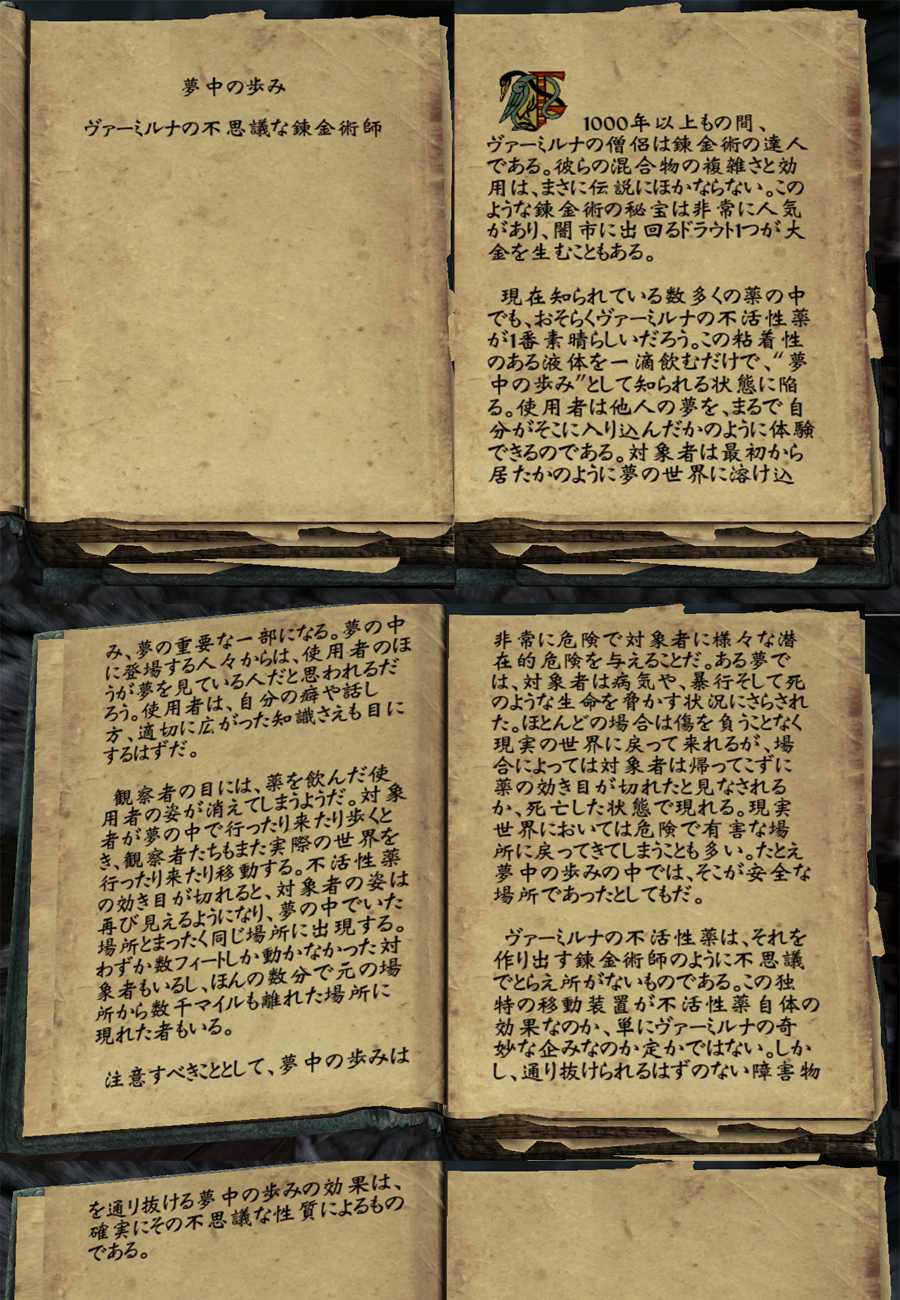 夢中の歩み
ヴァーミルナの不思議な錬金術師
1000年以上もの間、
ヴァーミルナの僧侶は錬金術の達人
である。彼らの混合物の複雑さと効
用は、まさに伝説にほかならない。この
ような錬金術の秘宝は非常に人気
があり、闇市に出回るドラウト1つが大
金を生むこともある。
現在知られている数多くの薬の中
でも、おそらくヴァーミルナの不活性薬
が1番素晴らしいだろう。この粘着性
のある液体を一滴飲むだけで、“夢
中の歩み”として知られる状態に陥
る。使用者は他人の夢を、まるで自
分がそこに入り込んだかのように体験
できるのである。対象者は最初から
居たかのように夢の世界に溶け込
み、夢の重要な一部になる。夢の中
に登場する人々からは、使用者のほ
うが夢を見ている人だと思われるだ
ろう。使用者は、自分の癖や話し
方、適切に広がった知識さえも目に
するはずだ。
観察者の目には、薬を飲んだ使
用者の姿が消えてしまうようだ。対象
者が夢の中で行ったり来たり歩くと
き、観察者たちもまた実際の世界を
行ったり来たり移動する。不活性薬
の効き目が切れると、対象者の姿は
再び見えるようになり、夢の中でいた
場所とまったく同じ場所に出現する。
わずか数フィートしか動かなかった対
象者もいるし、ほんの数分で元の場
所から数千マイルも離れた場所に
現れた者もいる。
注意すべきこととして、夢中の歩みは
非常に危険で対象者に様々な潜
在的危険を与えることだ。ある夢で
は、対象者は病気や、暴行そして死
のような生命を脅かす状況にさらされ
た。ほとんどの場合は傷を負うことなく
現実の世界に戻って来れるが、場
合によっては対象者は帰ってこずに
薬の効き目が切れたと見なされる
か、死亡した状態で現れる。現実
世界においては危険で有害な場
所に戻ってきてしまうことも多い。たとえ
夢中の歩みの中では、そこが安全な
場所であったとしてもだ。
ヴァーミルナの不活性薬は、それを
作り出す錬金術師のように不思議
でとらえ所がないものである。この独
特の移動装置が不活性薬自体の
効果なのか、単にヴァーミルナの奇
妙な企みなのか定かではない。しか
し、通り抜けられるはずのない障害物
を通り抜ける夢中の歩みの効果は、
確実にその不思議な性質によるもの
である。